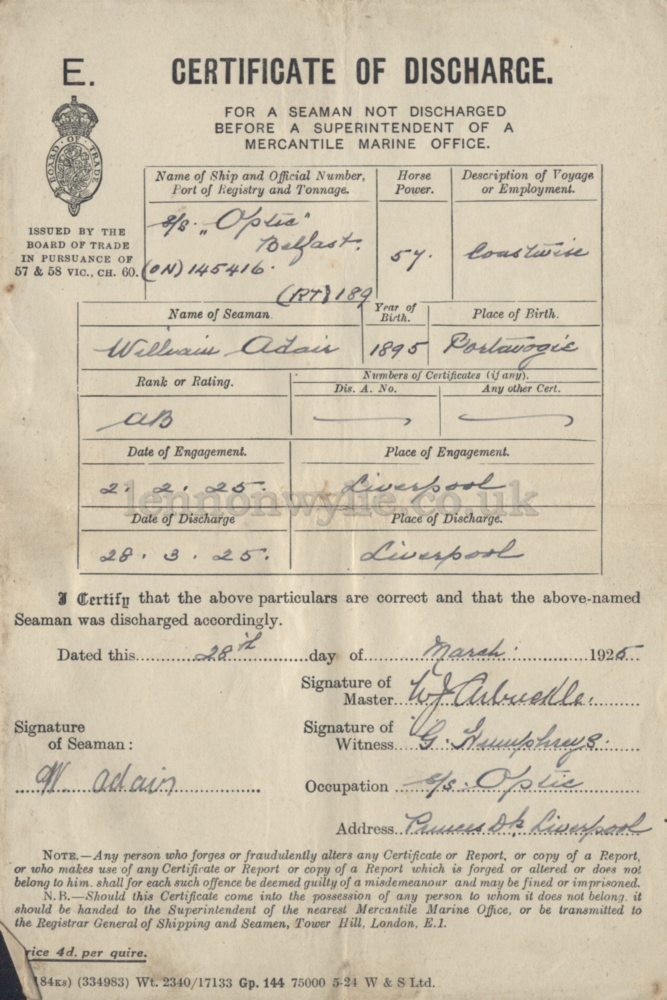 E.
CERTIFICATE OF DISCHARGE.
FOR A SEAMAN NOT DISCHARGED
BEFORE A SUPERINTENDENT OF A
MERCANTILE MARINE OFFICE.
BOARD OF TRADE
ISSUED BY THE
BOARD OF TRADE
IN PURSUANCE OF
57 & 58 VIC., CH. 60.
Name of Ship and Official Number,
Port of Registry and Tonnage.
Horse
Power.
Description of Voyage
or Employment.
s/s. "Optic"
Belfast.
(ON) 145416.
(RT) 189
57.
Coastwise
Name of Seaman
Year of
Birth.
Place of Birth.
William Adair
1895
Portavogie
Rank or Rating.
Numbers of Certificates (if any).
Dis. A. No.
Any other Cert.
AB
Date of Engagement.
Place of Engagement.
2. 2. 25.
Liverpool
lennonwylie.co.uk
Date of Discharge
Place of Discharge.
28. 3. 25.
Liverpool
I Certify that the above particulars are correct and that the above-named
Seaman was discharged accordingly.
Dated this 28th day of March. 1925
Signature of
Master W J Arbuckle.
Signature
of Seaman:
W. adair
Signature of
Witness G. Humphreys.
Occupation s/s. Optic
Address Princes Dk Liverpool
NOTE.—Any person who forges or fraudulently alters any Certificate or Report, or copy of a Report,
or who makes use of any Certificate or Report or copy of a Report which is forged or altered or does not
belong to him. shall for each such offence be deemed guilty of a misdemeanour and may be fined or imprisoned.
N.B.—Should this Certificate come into the possession of any person to whom it does not belong, it
should be handed to the Superintendent of the nearest Mercantile Marine Office, or be transmitted to
the Registrar General of Shipping and Seamen, Tower Hill, London, E.1.
rice 4d. per quire.
84KS) (334983) Wt. 2340/17133 Gp. 144 75000 5-24 W & S Ltd.